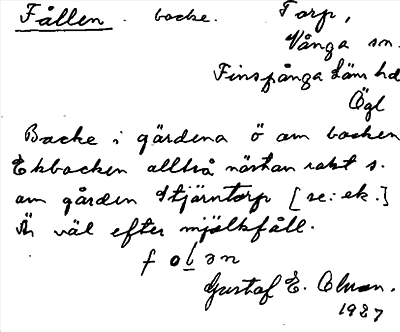 Fållen. backe. Torp,
Vånga sn.
Finspånga läns hd
Ögl
Backe i gärdena ö om backen
Ekbacken alltså nästan rakt s.
om gården Stjärntorp [se: ek.]
Är väl efter mjölkfåll.
folən
Gustaf E. Olson.
1927